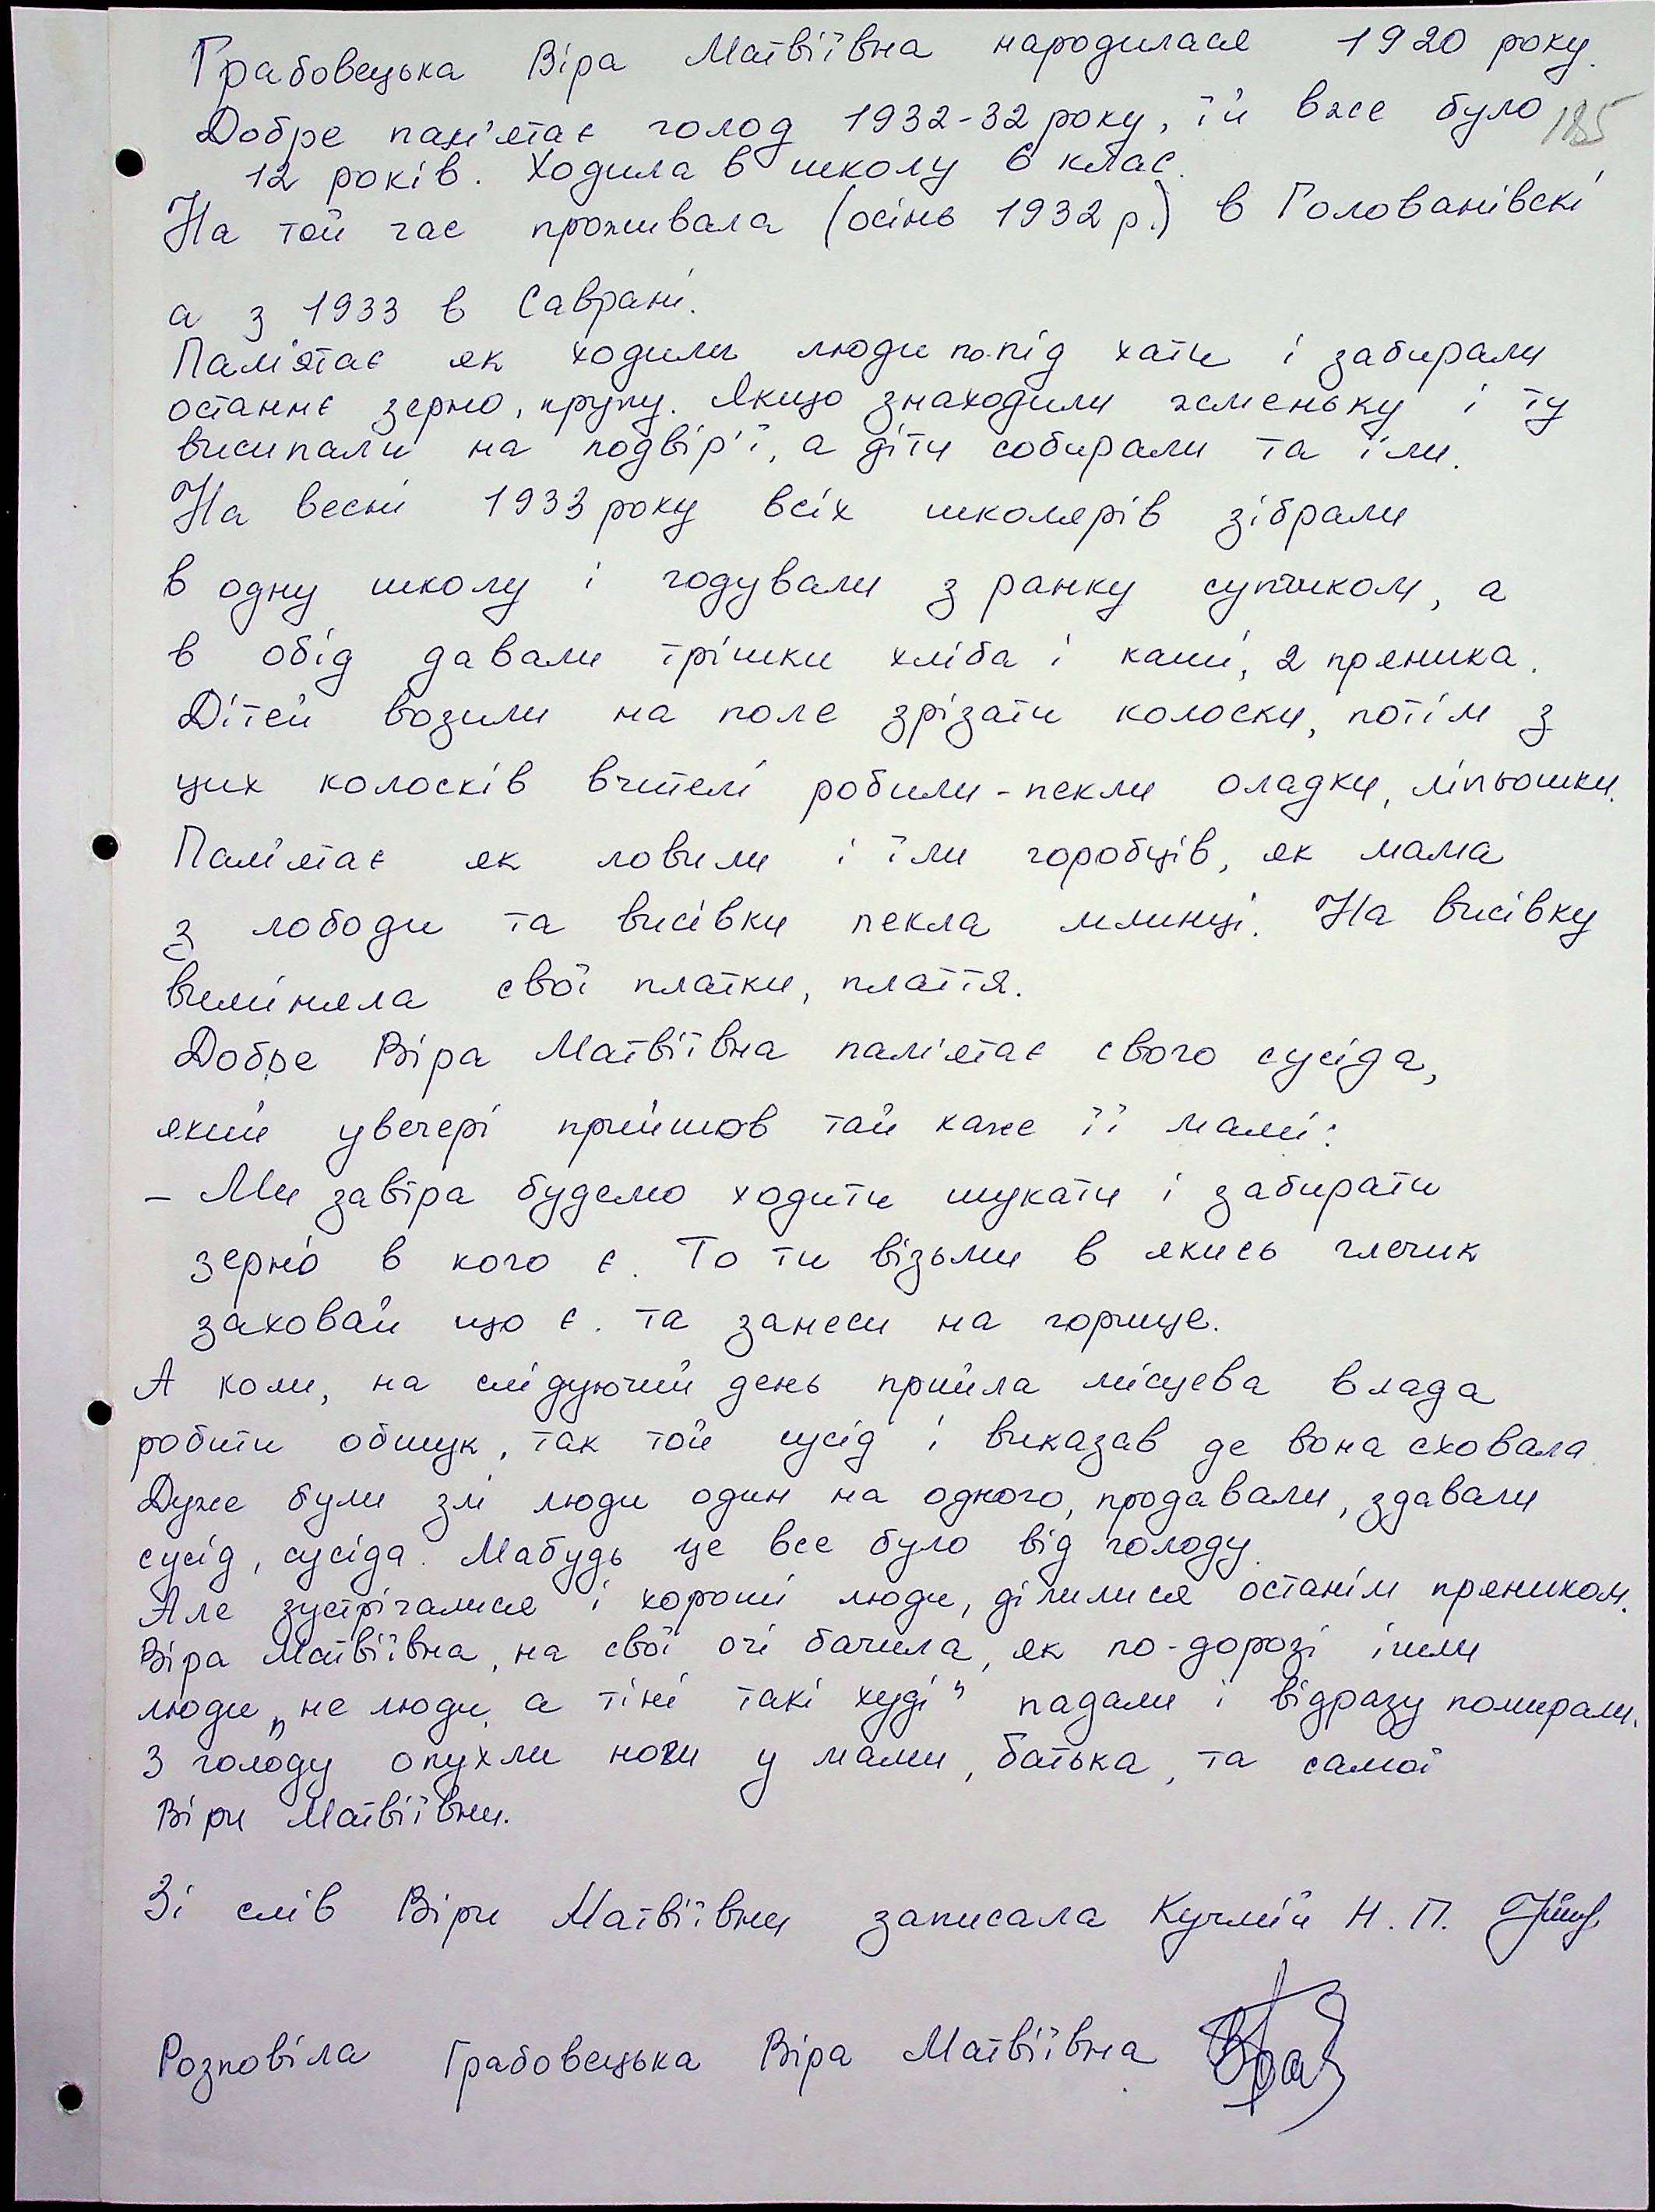 Грабовецька Віра Матвіївна народилася 1920 року.
Добре пам'ятає голод 1932-32 року, їй вже було 185
12 років. Ходила в школу 6 клас.
На той час проживала (осінь 1932 р.) в Голованівскі
а з 1933 в Саврані.
Пам'ятає як ходили люди по-під хати і забирали
останнє зерно, крупу. Якщо знаходили жменьку і ту
висипали на подвір'ї, а діти собирали та їли.
На весні 1933 року всіх школярів зібрали
в одну школу і годували з ранку супчиком, а
в обід давали трішки хліба і каші, 2 пряника.
Дітей возили на поле зрізати колоски, потім з
цих колосків вчителі робили-пекли оладки, ліпьошки.
Пам'ятає як ловили і їли горобців, як мама
з лободи та висівки пекла млинці. На висівку
виміняла свої платки, платтія.
Добре Віра Матвіївна пам'ятає свого сусіда,
який увечері прийшов тай каже її мамі:
– Ми завтра будемо ходити шукати і забирати
зерно в кого є. То ти візьми в якись глечик
заховай що є. та занеси на горище.
А коли, на слідуючий день прийла місцева влада
робити обшук, так той сусід і виказав де вона сховала.
Дуже були злі люди один на одного, продавали, здавали
сусід, сусіда. Мабудь це все було від голоду.
Але зустрічалися і хороші люди, ділилися останім пряником.
Віра Матвіївна, на свої очі бачила, як по-дорозі ішли
люди „не люди, а тіні такі худі" падали і відразу помирали.
З голоду опухли ноги у мами, батька, та самої
Віри Матвіївни.
Зі слів Віри Матвіївни записала Кучмій Н. П.
Розповіла Грабовецька Віра Матвіївна